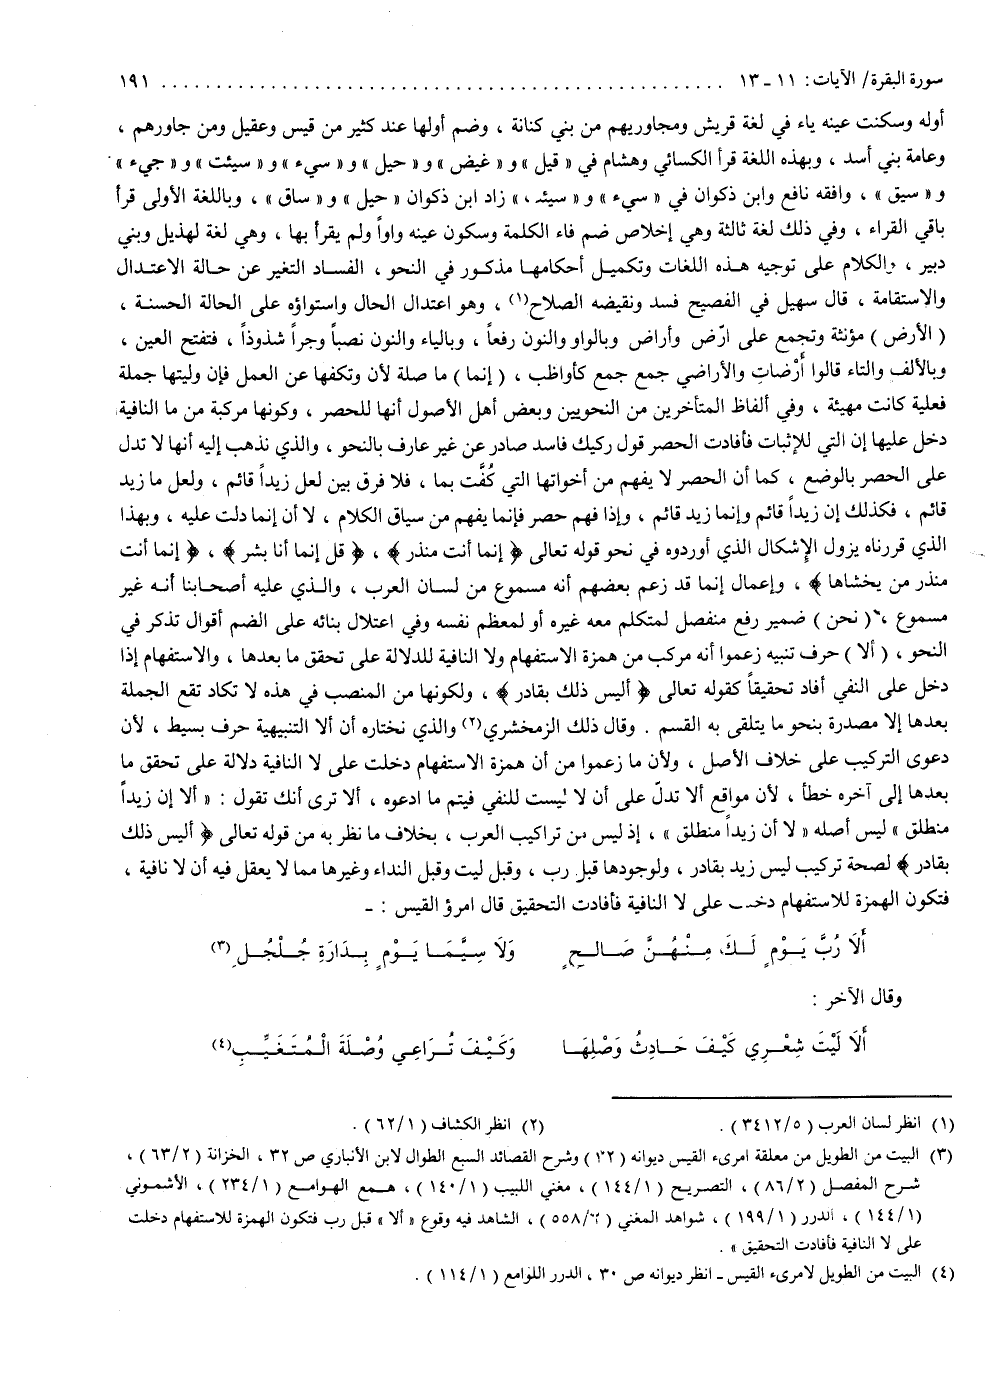 سورة البقرة/ الآيات: ١١ ـ ١٣ ........................................................ ١٩١
أوله وسكنت عينه ياء في لغة قريش ومجاوريهم من بني كنانة ، وضم أولها عند كثير من قيس وعقيل ومن جاورهم ،
وعامة بني أسد ، وبهذه اللغة قرأ الكسائي وهشام في « قيل » و « غيض » و « حيل » و « سيء » و « سيئت » و « جيء »
و « سيق » ، وافقه نافع وابن ذكوان في « سيء » و « سيئت » زاد ابن ذكوان « حيل » و « ساق » ، وباللغة الأولى قرأ
باقي القراء ، وفي ذلك لغة ثالثة وهي إخلاص ضم فاء الكلمة وسكون عينه واواً ولم يقرأ بها ، وهي لغة لهذيل وبني
دبير ، والكلام على توجيه هذه اللغات وتكميل أحكامها مذكور في النحو ، الفساد التغير عن حالة الاعتدال
والاستقامة ، قال سهيل في الفصيح فسد ونقيضه الصلاح(١) ، وهو اعتدال الحال واستواؤه على الحالة الحسنة ،
( الأرض ) مؤنثة وتجمع على آرُض وأراض وبالواو والنون رفعاً ، وبالياء والنون نصباً وجراً شذوذاً ، فتفتح العين ،
وبالألف والتاء قالوا أَرْضات والأراضي جمع جمع كأواظب ، ( إنما ) ما صلة لأن وتكفها عن العمل فإن وليتها جملة
فعلية كانت مهيئة ، وفي ألفاظ المتأخرين من النحويين وبعض أهل الأصول أنها للحصر ، وكونها مركبة من ما النافية
دخل عليها إن التي للإثبات فأفادت الحصر قول ركيك فاسد صادر عن غير عارف بالنحو ، والذي نذهب إليه أنها لا تدل
على الحصر بالوضع ، كما أن الحصر لا يفهم من أخواتها التي كُفَّت بما ، فلا فرق بين لعل زيداً قائم ، ولعل ما زيد
قائم ، فكذلك إن زيداً قائم وإنما زيد قائم ، وإذا فهم حصر فإنما يفهم من سياق الكلام ، لا أن إنما دلت عليه ، وبهذا
الذي قررناه يزول الإشكال الذي أوردوه في نحو قوله تعالى ﴿ إنما أنت منذر ﴾ ، ﴿ قل إنما أنا بشر ﴾ ، ﴿ إنما أنت
منذر من يخشاها ﴾ ، وإعمال إنما قد زعم بعضهم أنه مسموع من لسان العرب ، والذي عليه أصحابنا أنه غير
مسموع ، ( نحن ) ضمير رفع منفصل لمتكلم معه غيره أو لمعظم نفسه وفي اعتلال بنائه على الضم أقوال تذكر في
النحو ، ( ألا ) حرف تنبيه زعموا أنه مركب من همزة الاستفهام ولا النافية للدلالة على تحقق ما بعدها ، والاستفهام إذا
دخل على النفي أفاد تحقيقاً كقوله تعالى ﴿ أليس ذلك بقادر ﴾ ، ولكونها من المنصب في هذه لا تكاد تقع الجملة
بعدها إلا مصدرة بنحو ما يتلقى به القسم . وقال ذلك الزمخشري(٢) والذي نختاره أن ألا التنبيهية حرف بسيط ، لأن
دعوى التركيب على خلاف الأصل ، ولأن ما زعموا من أن همزة الاستفهام دخلت على لا النافية دلالة على تحقق ما
بعدها إلى آخره خطأ ، لأن مواقع ألا تدلّ على أن لا ليست للنفي فيتم ما ادعوه ، ألا ترى أنك تقول : « ألا إن زيداً
منطلق » ليس أصله « لا أن زيداً منطلق » ، إذ ليس من تراكيب العرب ، بخلاف ما نظر به من قوله تعالى ﴿ أليس ذلك
بقادر ﴾ لصحة تركيب ليس زيد بقادر ، ولوجودها قبل رب ، وقبل ليت وقبل النداء وغيرها مما لا يعقل فيه أن لا نافية ،
فتكون الهمزة للاستفهام دخلت على لا النافية فأفادت التحقيق قال امرؤ القيس : ـ
أَلَا رُبَّ يَوْمٍ لَكَ مِنْهُنَّ صَالِحٍ وَلَا سِيَّمَا يَوْمٍ بِدَارَةِ جُلْجُلِ(٣)
وقال الآخر :
أَلَا لَيْتَ شِعْرِي كَيْفَ حَادِثُ وَصْلِهَا وَكَيْفَ تُرَاعِي وُصْلَةَ الْمُتَغَيِّبِ(٤)
(١) انظر لسان العرب ( ٣٤١٢/٥ ) . (٢) انظر الكشاف ( ٦٢/١ ) .
(٣) البيت من الطويل من معلقة امرىء القيس ديوانه وشرح القصائد السبع الطوال لابن الأنباري ص ٣٢ ، الخزانة ( ٦٣/٢ ) ،
شرح المفصل ( ٨٦/٢ ) ، التصريح ( ١٤٤/١ ) ، مغني اللبيب ( ١٤٠/١ ) ، همع الهوامع ( ٢٣٤/١ ) ، الأشموني
( ١٤٤/١ ) ، الدرر ( ١٩٩/١ ) ، شواهد المغني ، الشاهد فيه وقوع « ألا » قبل رب فتكون الهمزة للاستفهام دخلت
على لا النافية فأفادت التحقيق » .
(٤) البيت من الطويل لامرىء القيس ـ انظر ديوانه ص ٣٠ ، الدرر اللوامع ( ١١٤/١ ) .